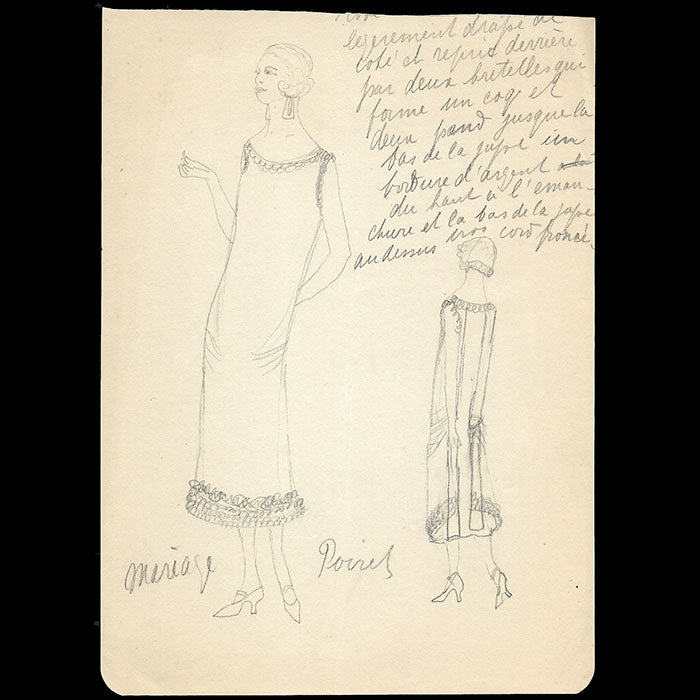 legerement drapé de
coté et repris derrière
par deux bretelles qui
forme un coq et
deux pand jusque la
bas de la jupe un
bordure d'argent
du haut a l'eman-
chure et la bas de la jupe
au dessus gros cord froncé.
mariage
Poiret